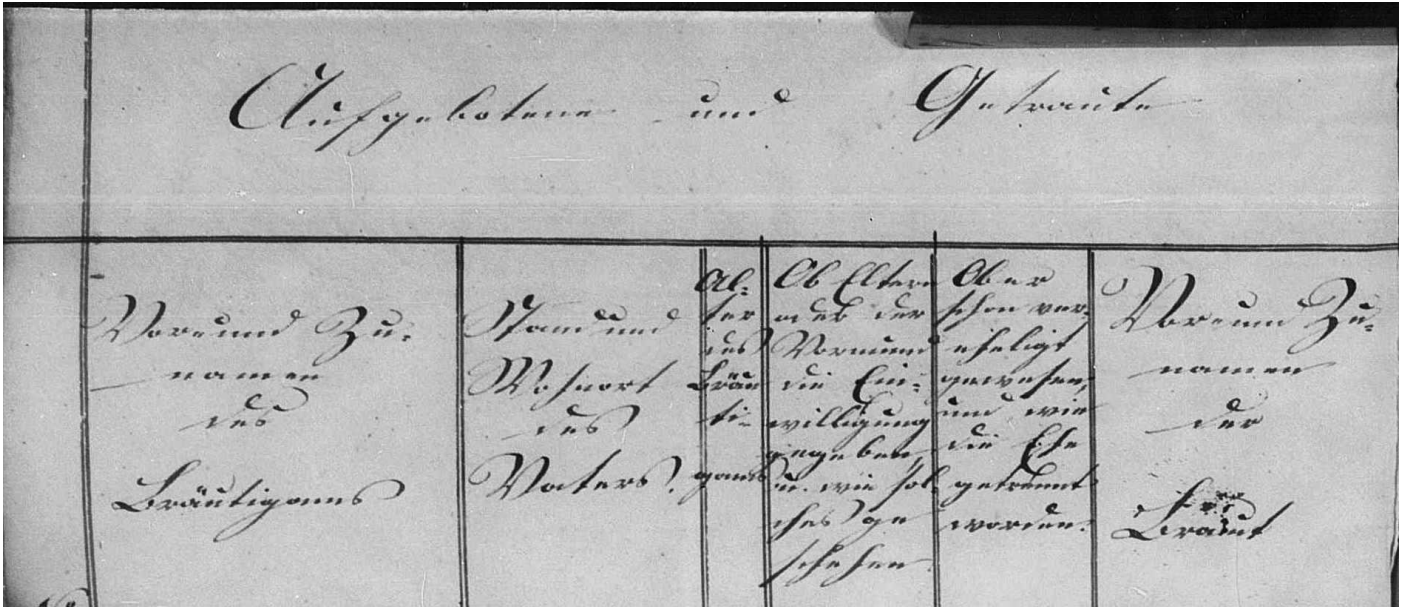 Aufgebotene und Getraute
Vor- und Zu-
namen
des
Bräutigams
Stand und
Wohnort
des
Vaters.
Al-
ter
des
Bräu
ti-
gams
Ob Eltern
oder der
Vormund
die Ein-
willigung
gegeben,
u. wie sol-
ches ge
schehen.
Ob er
schon ver-
eheligt
gewesen,
und wie
die Ehe
getrennt
worden.
Vor- und Zu-
namen
der
Braut